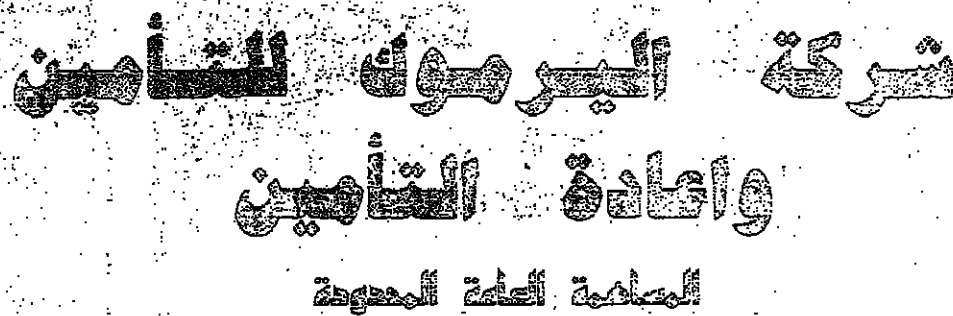 شركة اليرموك للتأمين
واعادة التأمين
المساهمة العامة المحدودة